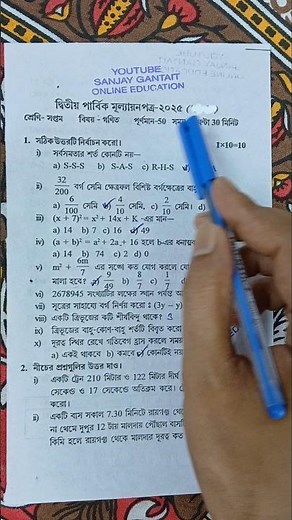 YOUTUBE
SANJAY GANTAIT
ONLINE EDUCATION
দ্বিতীয় পার্বিক মূল্যায়নপত্র-২০২৫
শ্রেণি- সপ্তম বিষয় - গণিত পূর্ণমান-50 30 মিনিট
1. সঠিক উত্তরটি নির্বাচন করো। 1×10=10
i) সর্বসমতার শর্ত কোনটি নয়—
a) S-S-S b) S-A-S c) R-H-S
ii) 32/200 বর্গ সেমি ক্ষেত্রফল বিশিষ্ট বর্গক্ষেত্রের
a) 6/100 সেমি b) 4/10 সেমি, c) 2/10 সেমি। d)
iii) (x + 7)² = x² + 14x + K -এর মান—
a) 14 b) 7 c) 16 d) 49
iv) (a + b)² = a² + 2a + 16 হলে b-এর
a) 14 b) 74 c) 2 d) 0
v) m² + 6m/7 এর সঙ্গে কত যোগ করলে
মালা হবে? a) 9/49 b) 8/7 c) 7/
vi) 2678945 সংখ্যাটির লক্ষের স্থান পর্যন্ত
vii) সূত্রের সাহায্যে বর্গ নির্ণয় করো : (3y −
viii) একটি ত্রিভুজের কটি শীর্ষবিন্দু থাকে? 3
ix) ত্রিভুজের বাহু-কোণ-বাহু শর্তটি বিবৃত
x) দূরত্ব স্থির রেখে গতিবেগ হ্রাস করলে
a) একই থাকবে b) কমবে c) কোনটিই নয়
2. নীচের প্রশ্নগুলির উত্তর দাও।
i) একটি ট্রেন 210 মিটার ও 122 মিটার দীর্ঘ
সেকেন্ড ও 17 সেকেন্ডে অতিক্রম করে।
করো।
ii) একটি বাস সকাল 7.30 মিনিটে রায়গঞ্জ
না থেমে দুপুর 12 টায় মালদায় পৌঁছাল
কিমি হলে রায়গঞ্জ থেকে মালদার দূরত্ব কত